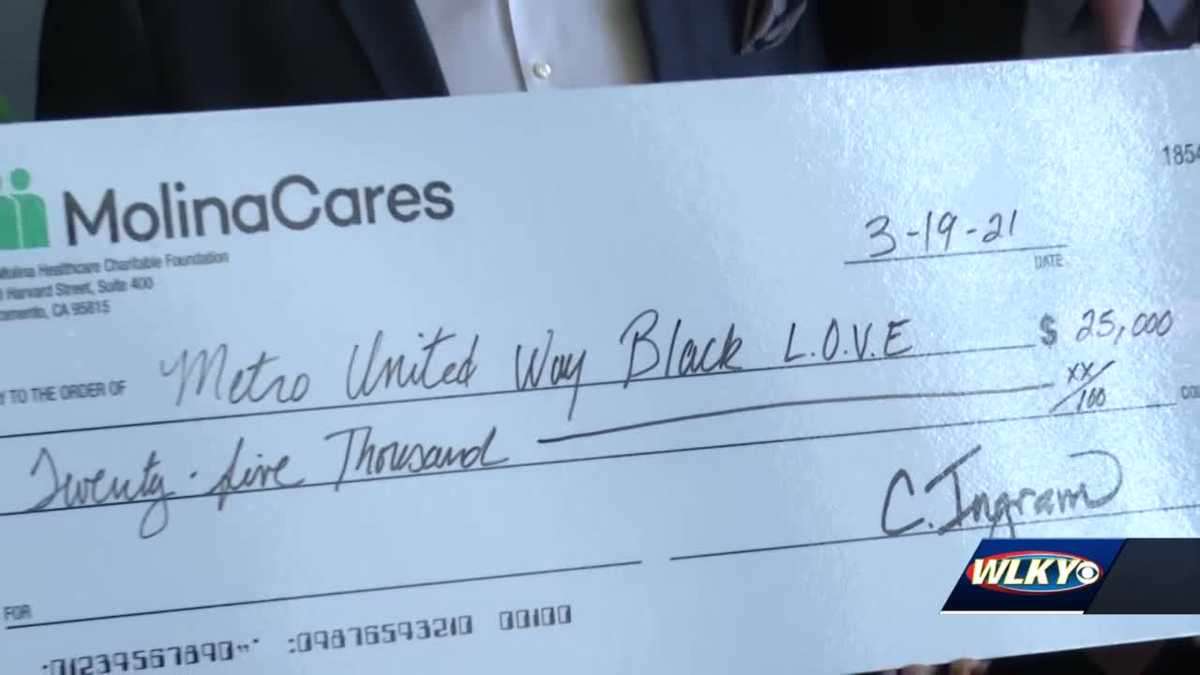 MolinaCares
1854
Molina Healthcare Charitable Foundation
Harvard Street, Suite 400
CA 95815
3-19-21
DATE
TO THE ORDER OF Metro United Way Black L.O.V.E $ 25,000
Twenty-five Thousand xx/100
C. Ingram
FOR
WLKY
01239567890 :09876593210 00100